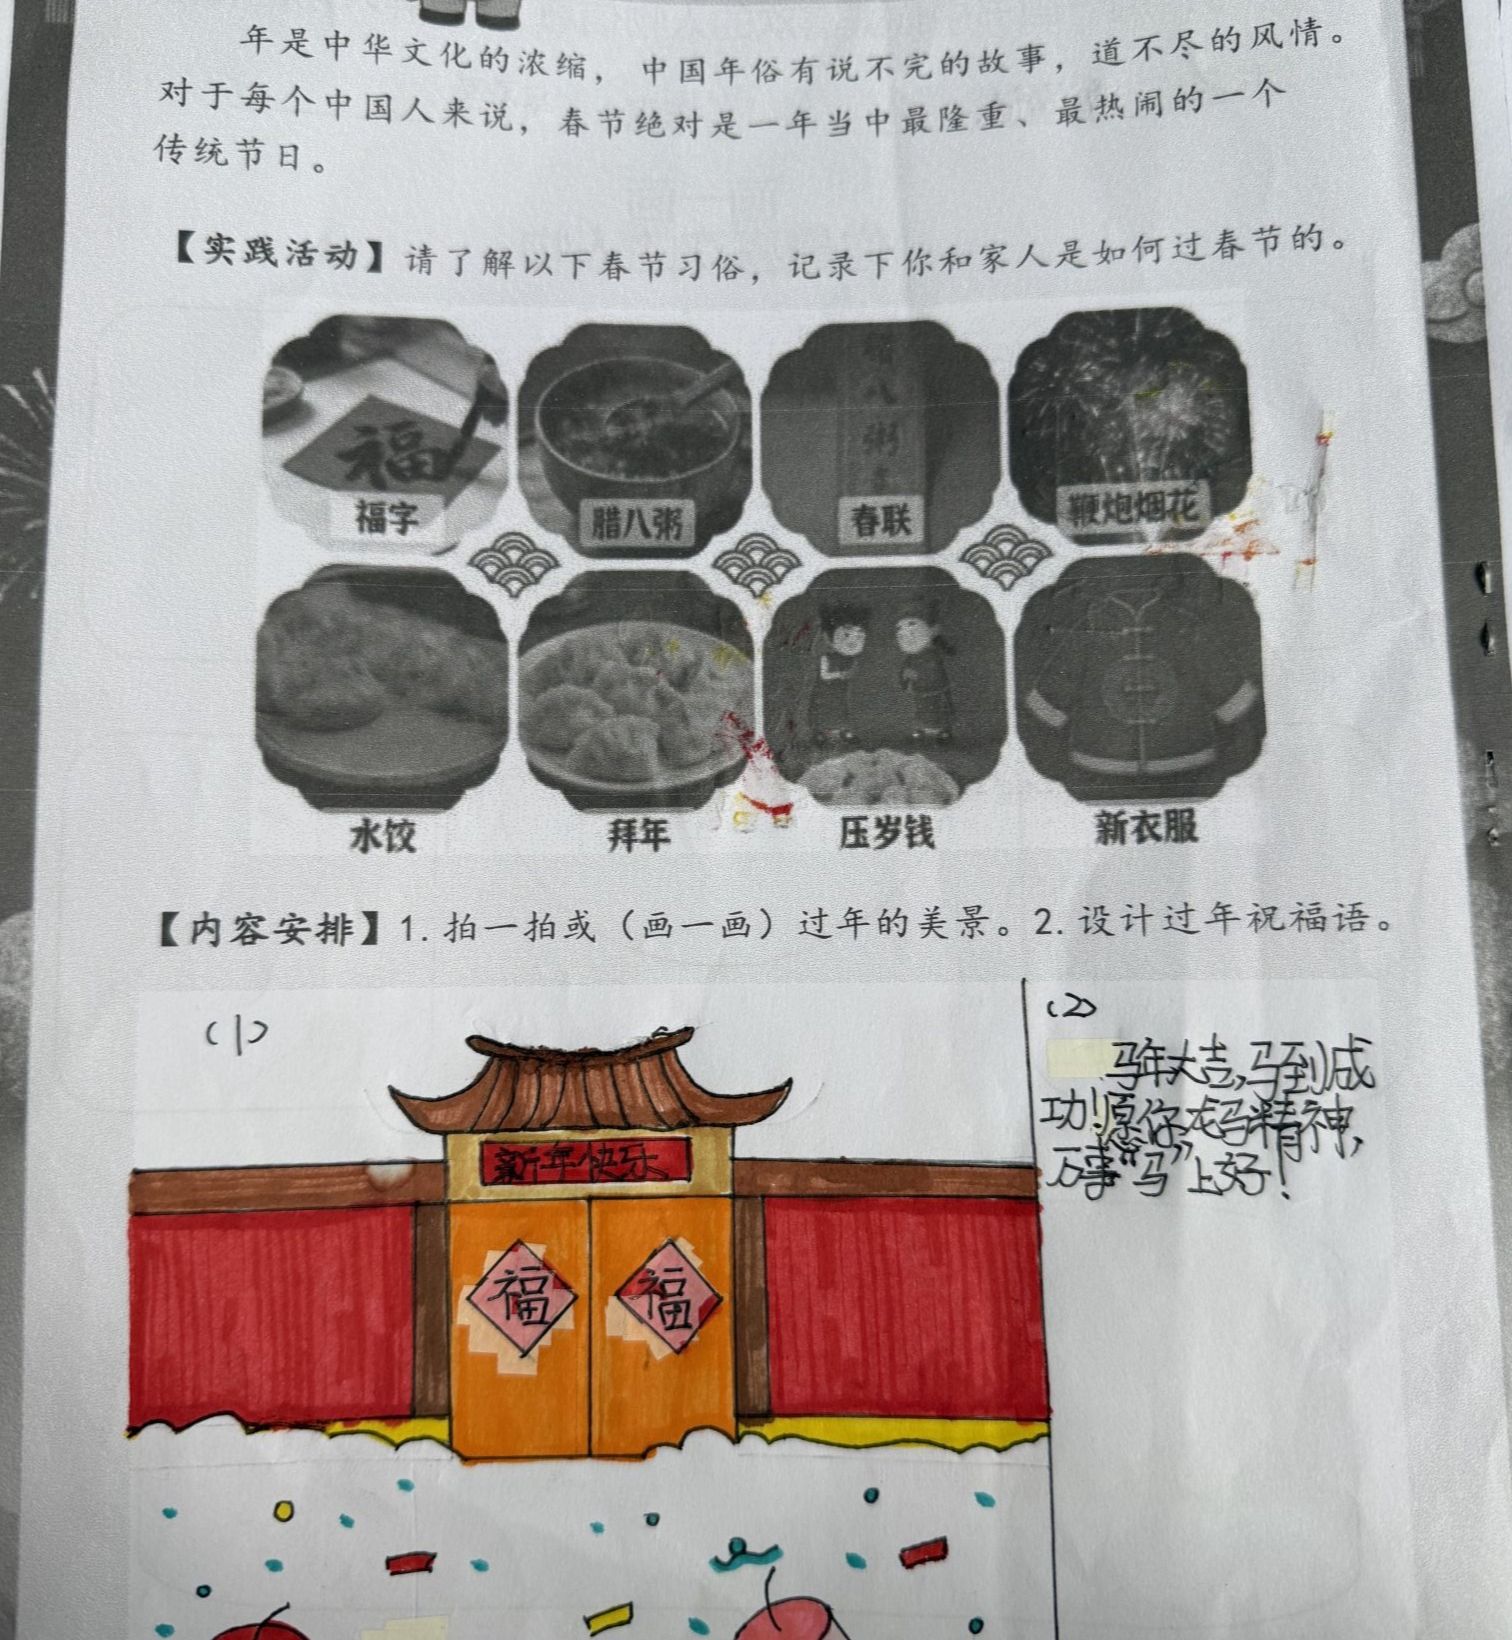 年是中华文化的浓缩，中国年俗有说不完的故事，道不尽的风情。
对于每个中国人来说，春节绝对是一年当中最隆重、最热闹的一个
传统节日。
【实践活动】请了解以下春节习俗，记录下你和家人是如何过春节的。
福
腊八粥
福字 腊八粥 春联 鞭炮烟花
水饺 拜年 压岁钱 新衣服
【内容安排】1.拍一拍或（画一画）过年的美景。2.设计过年祝福语。
(1)
新年快乐
福 福
(2)
马年大吉,马到成
功!愿你龙马精神,
万事“马”上好!